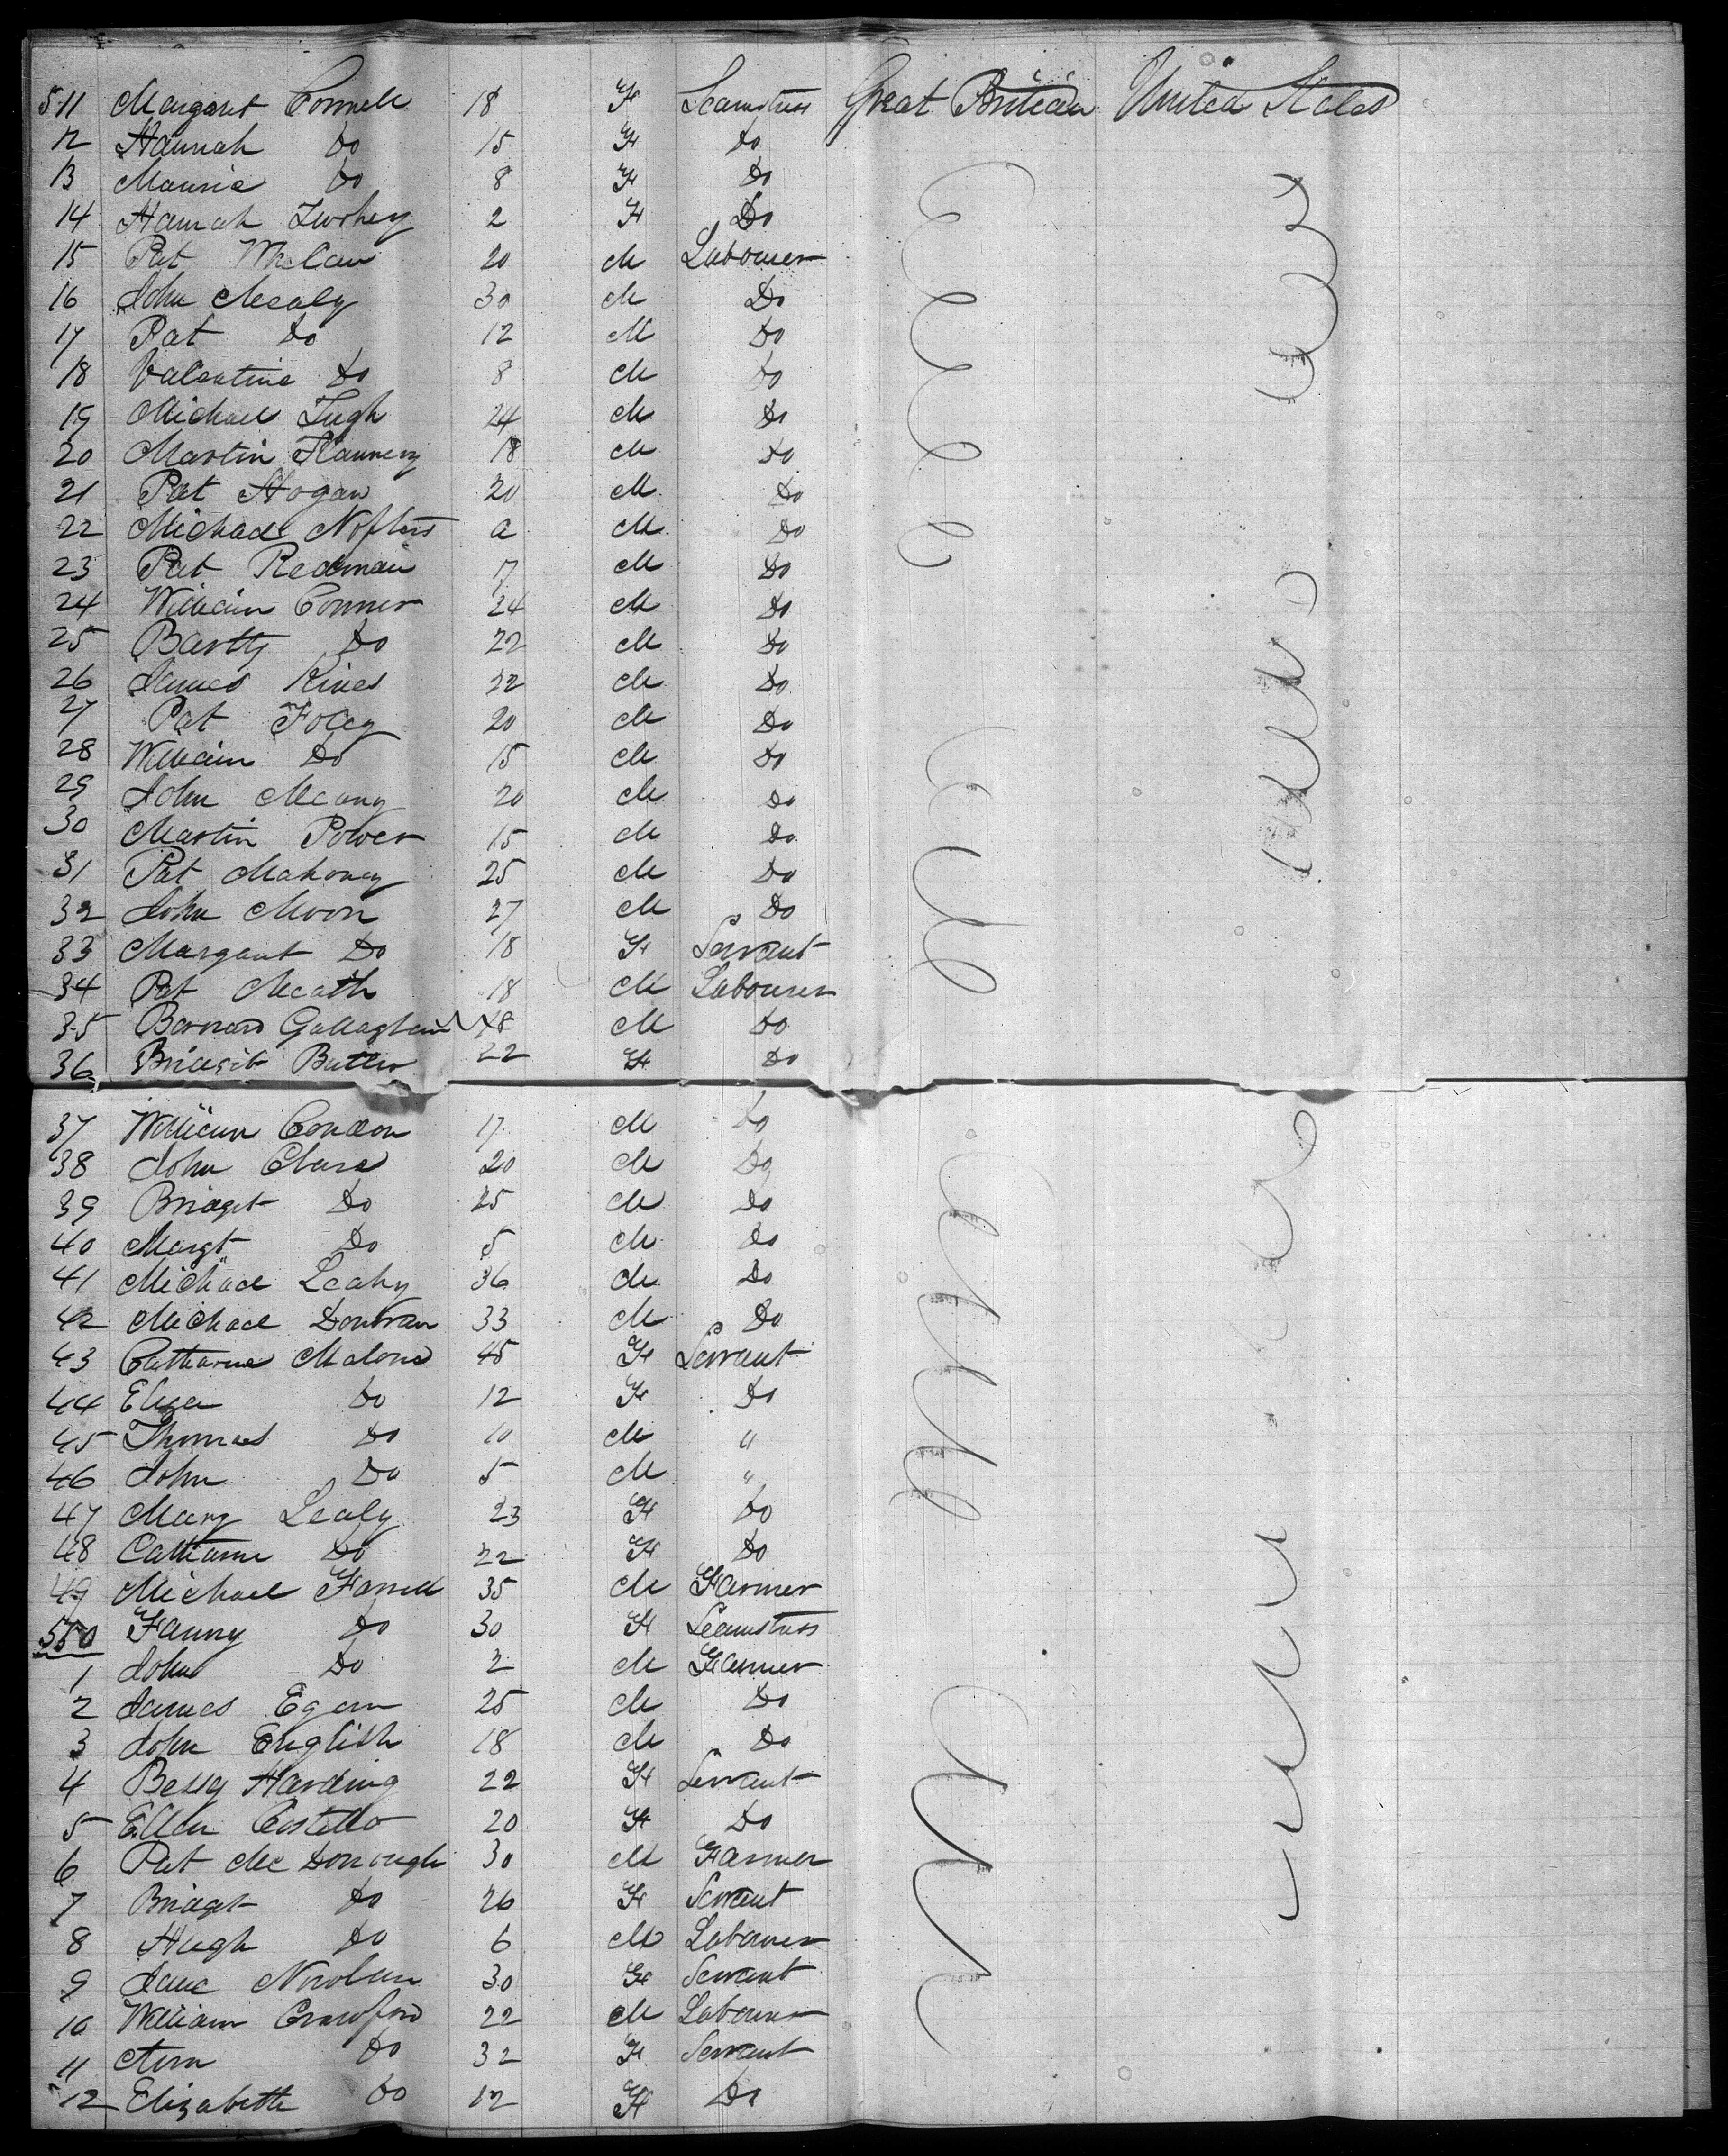 511 Margaret Connell 18 F Seamstress Great Britain United States
12 Hannah Do 15 F Do
13 Maurice Do 8 F Do
14 Hannah 2 F Do
15 Pat Whelan 20 M Labourer
16 John Mealy 30 M Do
17 Pat Do 12 M Do
18 Valentine Do 8 M Do
19 Michael 24 M Do
20 Martin Flannery 18 M Do
21 Pat Hogan 20 M Do
22 Michael a M Do
23 Pat Redman 7 M Do
24 William Conner 24 M Do
25 Bartty Do 22 M Do
26 James Kines 22 M Do
27 Pat Foley 20 M Do
28 William Do 15 M Do
29 John Meany 20 M Do
30 Martin Power 15 M Do
31 Pat Mahoney 25 M Do
32 John Moon 27 M Do
33 Margaret Do 18 F Servant
34 Pat Meath 18 M Labourer
35 Bernard 48 M Do
36 Bridget Butler 22 F Do
37 William Condon 17 M Do
38 John 20 M Do
39 Bridget Do 25 M Do
40 Margt Do 5 M Do
41 Michael Leahy 36 M Do
42 Michael Donovan 33 M Do
43 Catharine Malone 45 F Servant
44 Eliza Do 12 F Do
45 Thomas Do 10 M "
46 John Do 5 M "
47 Mary Lealy 23 F Do
48 Catharine Do 22 F Do
49 Michael Farrell 35 M Farmer
550 Fanny Do 30 F Seamstress
1 John Do 2 M Farmer
2 James Egan 25 M Do
3 John English 18 M Do
4 Bessy Harding 22 F Servant
5 Ellen Costello 20 F Do
6 Pat McDonough 30 M Farmer
7 Bridget Do 26 F Servant
8 Hugh Do 6 M Labourer
9 Jane Nowlan 30 F Servant
10 William Crawford 22 M Labourer
11 Ann Do 32 F Servant
12 Elizabeth Do 12 F Do